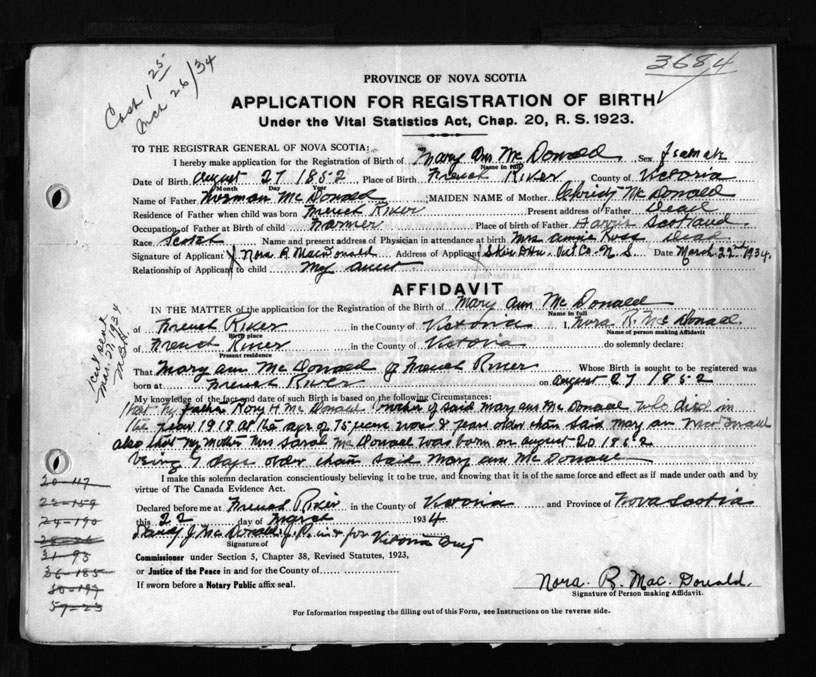 3684
Cash 1 25
Mch 26/34
PROVINCE OF NOVA SCOTIA
APPLICATION FOR REGISTRATION OF BIRTH
Under the Vital Statistics Act, Chap. 20, R. S. 1923.
TO THE REGISTRAR GENERAL OF NOVA SCOTIA:
I hereby make application for the Registration of Birth of Mary Ann McDonald Sex Female
Name in full
Date of Birth August 27 1852 Place of Birth French River County of Victoria
Month Day Year
Name of Father Norman McDonald MAIDEN NAME of Mother Christy McDonald
Residence of Father when child was born French River Present address of Father Dead
Occupation of Father at Birth of child Farmer Place of birth of Father Harris Scotland
Race Scotch Name and present address of Physician in attendance at birth Mrs Annie Ross Dead
Signature of Applicant X Nora R. MacDonald Address of Applicant Skir Dhu Vict Co. N. S. Date March 22nd 1934.
Relationship of Applicant to child My Aunt
AFFIDAVIT
IN THE MATTER of the application for the Registration of the Birth of Mary Ann McDonald
Name in full
of French River in the County of Victoria I, Nora R. McDonald
Birth place Name of person making Affidavit
of French River in the County of Victoria do solemnly declare:
Present residence
That Mary Ann McDonald of French River Whose Birth is sought to be registered was
born at French River on August 27 1852
My knowledge of the fact and date of such Birth is based on the following Circumstances:
That my father Rory H McDonald brother of said Mary Ann McDonald who died in
the year 1918 at the age of 75 years was 8 years older than said Mary Ann McDonald
also that my mother Mrs Sarah McDonald was born on August 20 1852
being 7 days older than said Mary Ann McDonald
I make this solemn declaration conscientiously believing it to be true, and knowing that it is of the same force and effect as if made under oath and by
virtue of The Canada Evidence Act.
Declared before me at French River in the County of Victoria and Province of Nova Scotia
this 22 day of March 1934
J. McDonald J. P. in & for Victoria
Signature of
Commissioner under Section 5, Chapter 38, Revised Statutes, 1923,
or Justice of the Peace in and for County of
If sworn before a Notary Public affix seal.
Nora R. MacDonald.
Signature of Person making Affidavit.
For Information respecting the filling out of this Form, see Instructions on the reverse side.
Cert sent
Mar. 27/1934
20-117
22-159
24-190
28-26
31-93
36-185
50-197
59-23